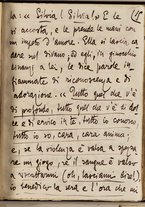 la: « Silvia! Silvia! » E le
si accosta, e le prende le mani con
un impeto d'amore. Ella si lascia ca-
dere sul divano; ed egli, in ginocchio
avanti a lei, le dice parole in-
fiammate di riconoscenza e di
adorazione. « Tutto quel che v'è
di profondo, tutto quel che v'è di dol-
ce e di in tutto io conosco
tutto io so, cara, cara anima;
e, se la violenza è valsa a spezza-
re un giogo, se il sangue è valso
a riscattarmi (oh, lasciami dire!)
io benedico la sera e l'ora che mi